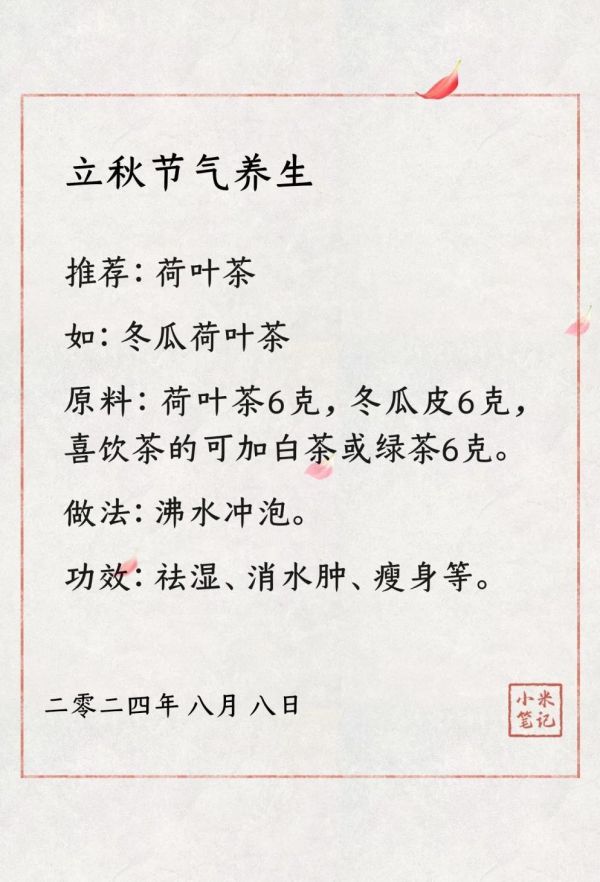 立秋节气养生
推荐：荷叶茶
如：冬瓜荷叶茶
原料：荷叶茶6克，冬瓜皮6克，
喜饮茶的可加白茶或绿茶6克。
做法：沸水冲泡。
功效：祛湿、消水肿、瘦身等。
二零二四年 八月 八日
小米
笔记